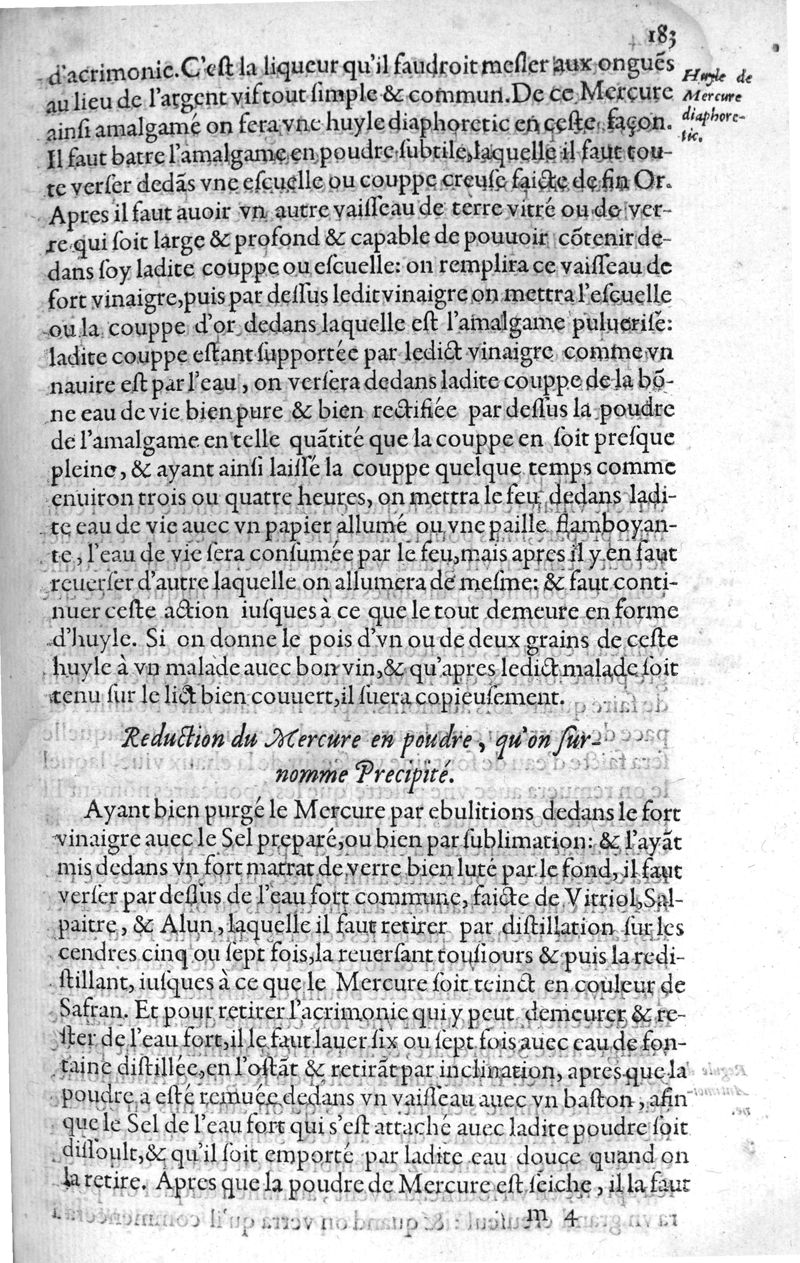 183
d'acrimonie. C'eſt la liqueur qu'il faudroit meſler aux onguẽs
au lieu de l'argent vif tout ſimple & commun. De ce Mercure
ainſi amalgamé on fera vne huyle diaphoretic en ceſte façon.
Huyle de
Mercure
diaphore-
tic.
Il faut batre l'amalgame en poudre ſubtile, laquelle il faut tou-
te verſer dedãs vne eſcuelle ou couppe creuſe faicte de fin Or.
Apres il faut auoir vn autre vaiſſeau de terre vitré ou de ver-
re qui ſoit large & profond & capable de pouuoir cõtenir de-
dans ſoy ladite couppe ou eſcuelle: on remplira ce vaiſſeau de
fort vinaigre, puis par deſſus ledit vinaigre on mettra l'eſcuelle
ou la couppe d'or dedans laquelle eſt l'amalgame puluerisé:
ladite couppe eſtant ſupportée par ledict vinaigre comme vn
nauire eſt par l'eau, on verſera dedans ladite couppe de la bõ-
ne eau de vie bien pure & bien rectifiée par deſſus la poudre
de l'amalgame en telle quãtité que la couppe en ſoit preſque
pleine, & ayant ainſi laiſſé la couppe quelque temps comme
enuiron trois ou quatre heures, on mettra le feu dedans ladi-
te eau de vie auec vn papier allumé ou vne paille flamboyan-
te, l'eau de vie ſera conſumée par le feu, mais apres il y en faut
reuerſer d'autre laquelle on allumera de meſme: & faut conti-
nuer ceſte action iuſques à ce que le tout demeure en forme
d'huyle. Si on donne le pois d'vn ou de deux grains de ceſte
huyle à vn malade auec bon vin, & qu'apres ledict malade ſoit
tenu ſur le lict bien couuert, il ſuera copieuſement.
Reduction du Mercure en poudre, qu'on ſur-
nomme Precipité.
Ayant bien purgé le Mercure par ebulitions dedans le fort
vinaigre auec le Sel preparé, ou bien par ſublimation: & l'ayãt
mis dedans vn fort matrat de verre bien luté par le fond, il faut
verſer par deſſus de l'eau fort commune, faicte de Vitriol, Sal-
paitre, & Alun, laquelle il faut retirer par diſtillation ſur les
cendres cinq ou ſept fois, la reuerſant touſiours & puis la redi-
ſtillant, iuſques à ce que le Mercure ſoit teinct en couleur de
Safran. Et pour retirer l'acrimonie qui y peut demeurer & re-
ſter de l'eau fort, il le faut lauer ſix ou ſept fois auec eau de fon-
taine diſtillée, en l'oſtãt & retirãt par inclination, apres que la
poudre a eſté remuée dedans vn vaiſſeau auec vn baſton, afin
que le Sel de l'eau fort qui s'eſt attaché auec ladite poudre ſoit
diſſoult, & qu'il ſoit emporté par ladite eau douce quand on
la retire. Apres que la poudre de Mercure eſt ſeiche, il la faut
m 4